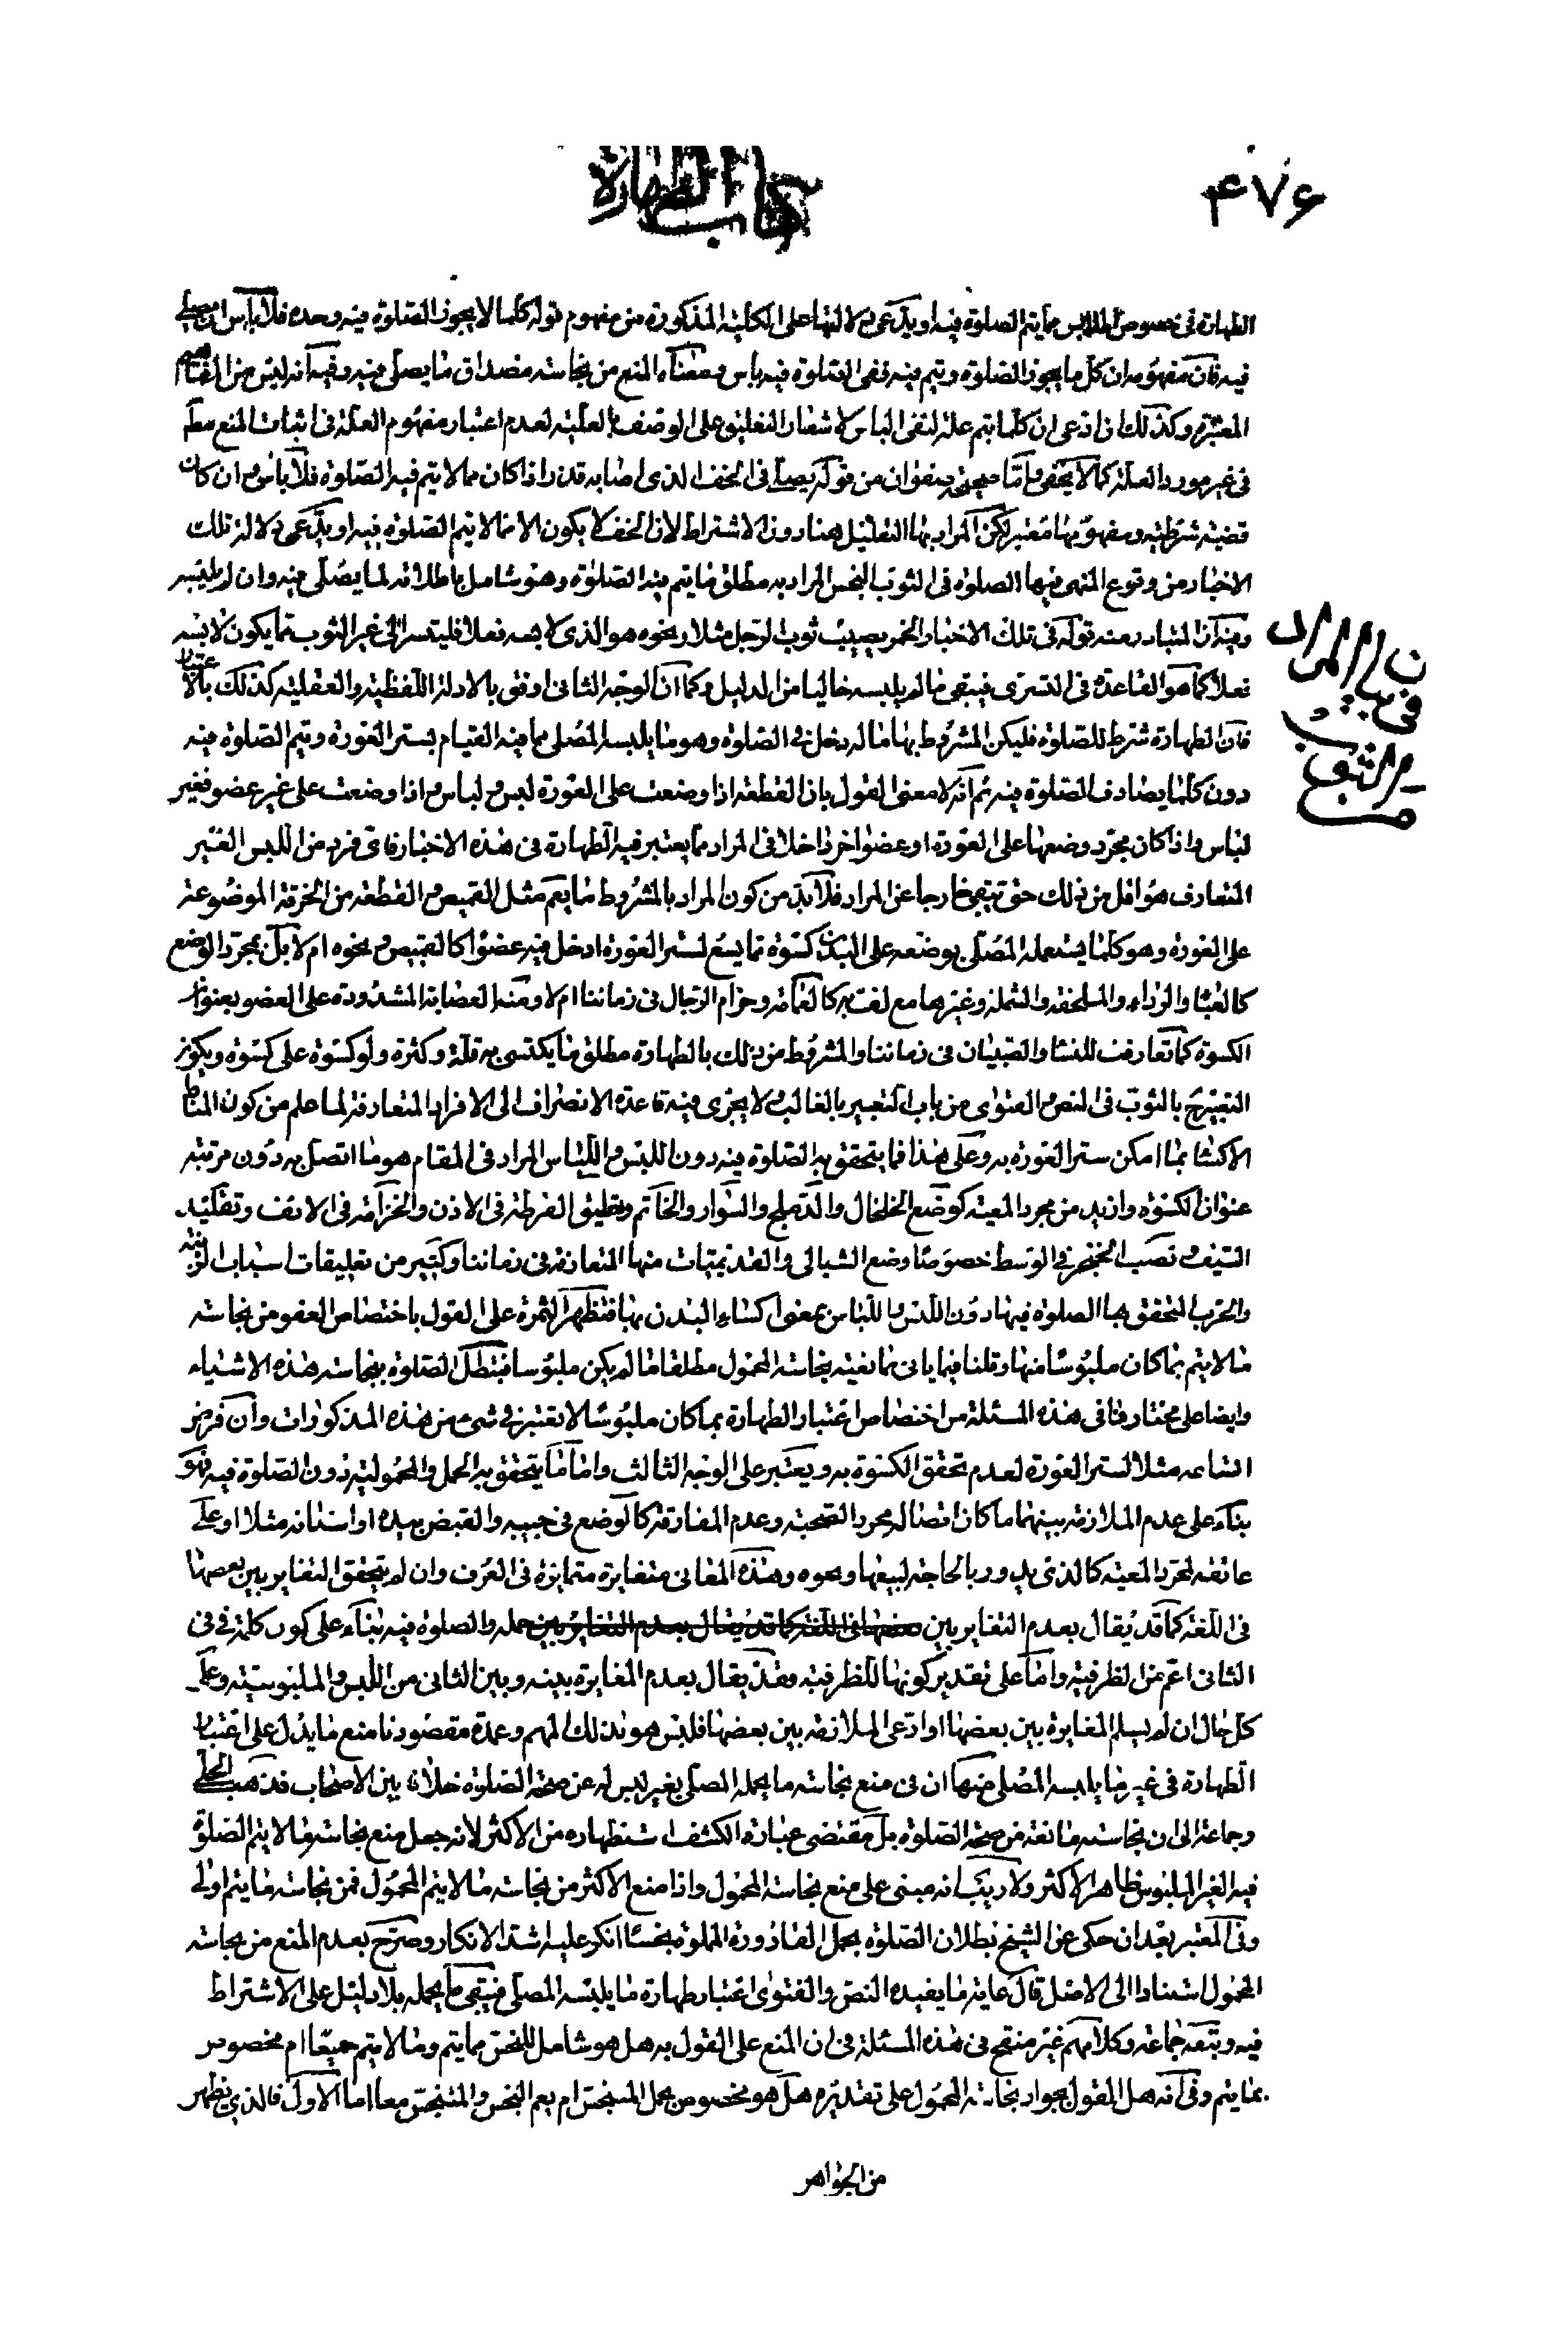 ۴۷۶
كتاب الطهارة
الطهارة فى خصوص الملابس مما يتم الصلوة فيه او يدعى دلالتها على الكلية المذكورة من مفهوم قوله كلما لا يجوز الصلوة فيه وحده فلا باس ان يصلى
فيه فان مفهومه ان كل ما يجوز الصلوة ويتم فيه ففى الصلوة فيه باس ومعناه المنع من نجاسته مصداق ما يصلى فيه وفيه انه ليس من المفاهيم
المعتبرة وكذلك اذا دعى ان كلما يتم علة لنفى الباس لاشعار التعليق على الوصف بالعلية لعدم اعتبار مفهوم العلة فى اثبات المنع مط
فى غير مورد العلة كما لا يخفى واما صحيحة صفوان من قوله يصلى فى الخف الذى اصابه قذر اذا كان مما لا يتم فيه الصلوة فلا باس وان كان
قضية شرطية ومفهومها معتبر لكن المراد بها التعليل هنا دون الاشتراط لان الخف لا يكون الا مما لا يتم الصلوة فيه او يدعى دلالة تلك
الاخبار من وقوع المنهى فيها الصلوة فى الثوب النجس المراد به مطلق ما يتم فيه الصلوة وهو شامل باطلاقه لما يصلى فيه وان لم يلبسه
وفيه ان المتبادر منه قوله فى تلك الاخبار الخمر يصيب ثوب الرجل مثلا ونحوه هو الذى لابسه فعلا فليتسر الى غير الثوب مما يكون لابسه
فعلا كما هو القاعدة فى التسرى فيبقى ما لم يلبسه خاليا من الدليل وكما ان الوجه الثانى اوفق بالادلة اللفظية والعقلية كذلك بالاعتبار
فان الطهارة شرط للصلوة فليكن المشروط بها ما له دخل فى الصلوة وهو ما يلبسه المصلى مما فيه القيام بستر العورة ويتم الصلوة فيه
دون كلما يصادف الصلوة فيه ثم انه لا معنى للقول بان القطعة اذا وضعت على العورة لبس ولباس واذا وضعت على غير عضو فغير
لباس واذا كان مجرد وضعها على العورة او عضوا اخر داخلا فى المراد مما يعتبر فيه الطهارة فى هذه الاخبار فاى فرد من اللبس الغير
المتعارف هو اقل من ذلك حتى يبقى خارجا عن المراد فلا بد من كون المراد بالمشروط ما يعم مثل القميص والقطعة من الخرقة الموضوعة
على العورة وهو كلما يستعمله المصلى بوضعه على البدن كسوة مما يسع لستر العورة ادخل فيه عضوا كالقميص ونحوه ام لا بل بمجرد الوضع
كالعبا والرداء والملحفة والشملة وغيرها مع لف به كالعمامة وحزام الرجال فى زماننا ام لا ومنه العصابة المشدودة على العضو بعنوان
الكسوة كما تعارف للنسا والصبيان فى زماننا والمشروط من ذلك بالطهارة مطلق ما يكتسى به قلة وكثرة ولو كسوة على كسوة ويكون
التعبير ح بالثوب فى النص والفتوى من باب التعبير بالغالب ولا يجرى فيه قاعدة الانصراف الى الافراد المتعارفة لما علم من كون المناط
الاكتسا بما امكن ستر العورة به وعلى هذا فما يتحقق به الصلوة فيه دون اللبس واللباس المراد فى المقام هو ما اتصل به دون مرتبة
عنوان الكسوة وازيد من مجرد المعية كوضع الخلخال والدملج والسوار والخاتم وتعليق القرطة فى الاذن والخزامة فى الانف وتقليد
السيف ونصب الخنجر فى الوسط خصوصا وضع الشبالى والقدتميات منها المتعارفة فى زماننا وكثير من تعليقات اسباب الزينة
والحرب المتحقق بها الصلوة فيها دون اللبس واللباس بمعنى اكتساء البدن بها فتظهر الثمرة على القول باختصاص العفو من نجاسته
ما لا يتم بما كان ملبوسا منها وقلنا فيما ياتى بمانعية نجاسة المحمول مطلقا ما لم يكن ملبوسا فتبطل الصلوة بنجاسة هذه الاشياء
وايضا على مختارنا فى هذه المسئلة من اختصاص اعتبار الطهارة بما كان ملبوسا لا تعتبر فى شىء من هذه المذكورات وان فرض
اتساعه مثلا لستر العورة لعدم تحقق الكسوة به ويعتبر على الوجه الثالث واما ما يتحقق به الحمل والمحمولية دون الصلوة فيه فهو
بناء على عدم الملازمة بينهما ما كان اتصاله مجرد الصحبة وعدم المفارقة كالوضع فى جيبه والقبض بيده او اسنانه مثلا او على
عاتقه لمجرد المعية كالذى يدور بالحاجة لبيعها ونحوه وهذه المعانى متغايرة متمايزة فى العرف وان لم يتحقق التغاير بين بعضها
فى اللغة كما قد يقال بعدم التغاير بين حمله والصلوة فيه بناء على كون كلمة فى فى
الثانى اعم من الظرفية واما على تقدير كونها للظرفية فقد يقال بعدم المغايرة بينه وبين الثانى من اللبس والملبوسيته وعلى
كل حال ان لم يسلم المغايرة بين بعضها او ادعى الملازمة بين بعضها فليس هو بذلك المهم وعمدة مقصودنا منع ما يدل على اعتبار
الطهارة فى غير ما يلبسه المصلى منها ان فى منع نجاسة ما يحمله المصلى بغير لبس له عن صحة الصلوة خلافا بين الاصحاب فذهب الحلى
وجماعة الى ان نجاسته مانعة من صحة الصلوة بل مقتضى عبارة الكشف استظهاره من الاكثر لانه جعل منع نجاسة ما لا يتم الصلوة
فيه الغير الملبوس ظاهر الاكثر ولا ريب انه مبنى على منع نجاسة المحمول واذا منع الاكثر من نجاسة ما لا يتم المحمول فمن نجاسة ما يتم اولى
وفى المعتبر بعد ان حكى عن الشيخ بطلان الصلوة بحمل القارورة المملوة نجسا انكر عليه اشد الانكار وصرح بعدم المنع من نجاسة
المحمول استنادا الى الاصل قال غاية ما يفيده النص والفتوى اعتبار طهارة ما يلبسه المصلى فيبقى ما يحمله بلا دليل على الاشتراط
فيه وتبعه جماعة وكلامهم غير منقح فى هذه المسئلة فى ان المنع على القول به هل هو شامل للنجس مما يتم وما لا يتم جميعا ام مخصوص
بما يتم وفى انه هل القول بجواز نجاسة المحمول على تقديره هل هو مخصوص بحمل المتنجس ام يعم النجس والمتنجس معا اما الاول فالذى يظهر
من الجواهر
فى بيان المراد
من الثوب